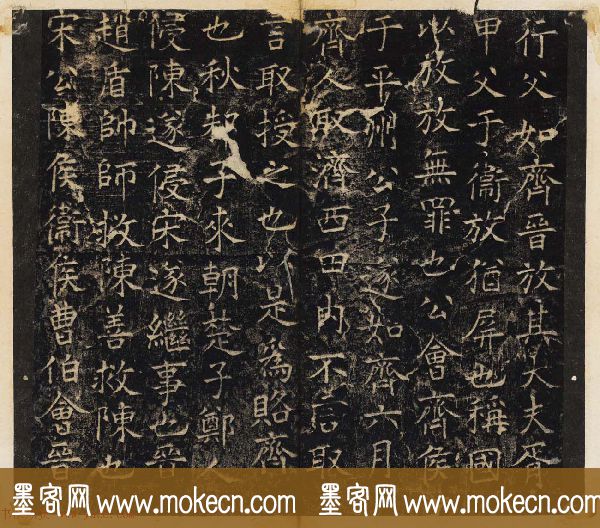 行父如齊晉放其大夫胥
甲父于衞放猶屏也稱國
以放放無罪也公會齊侯
于平州公子遂如齊六月
齊人取濟西田内不言取
言取授之也以是爲賂齊
也秋邾子來朝楚子鄭人
侵陳遂侵宋遂繼事也晉
趙盾帥師救陳善救陳也
宋公陳侯衞侯曹伯會晉
墨客网 www.mokecn.com 墨客网 www.mokecn.com